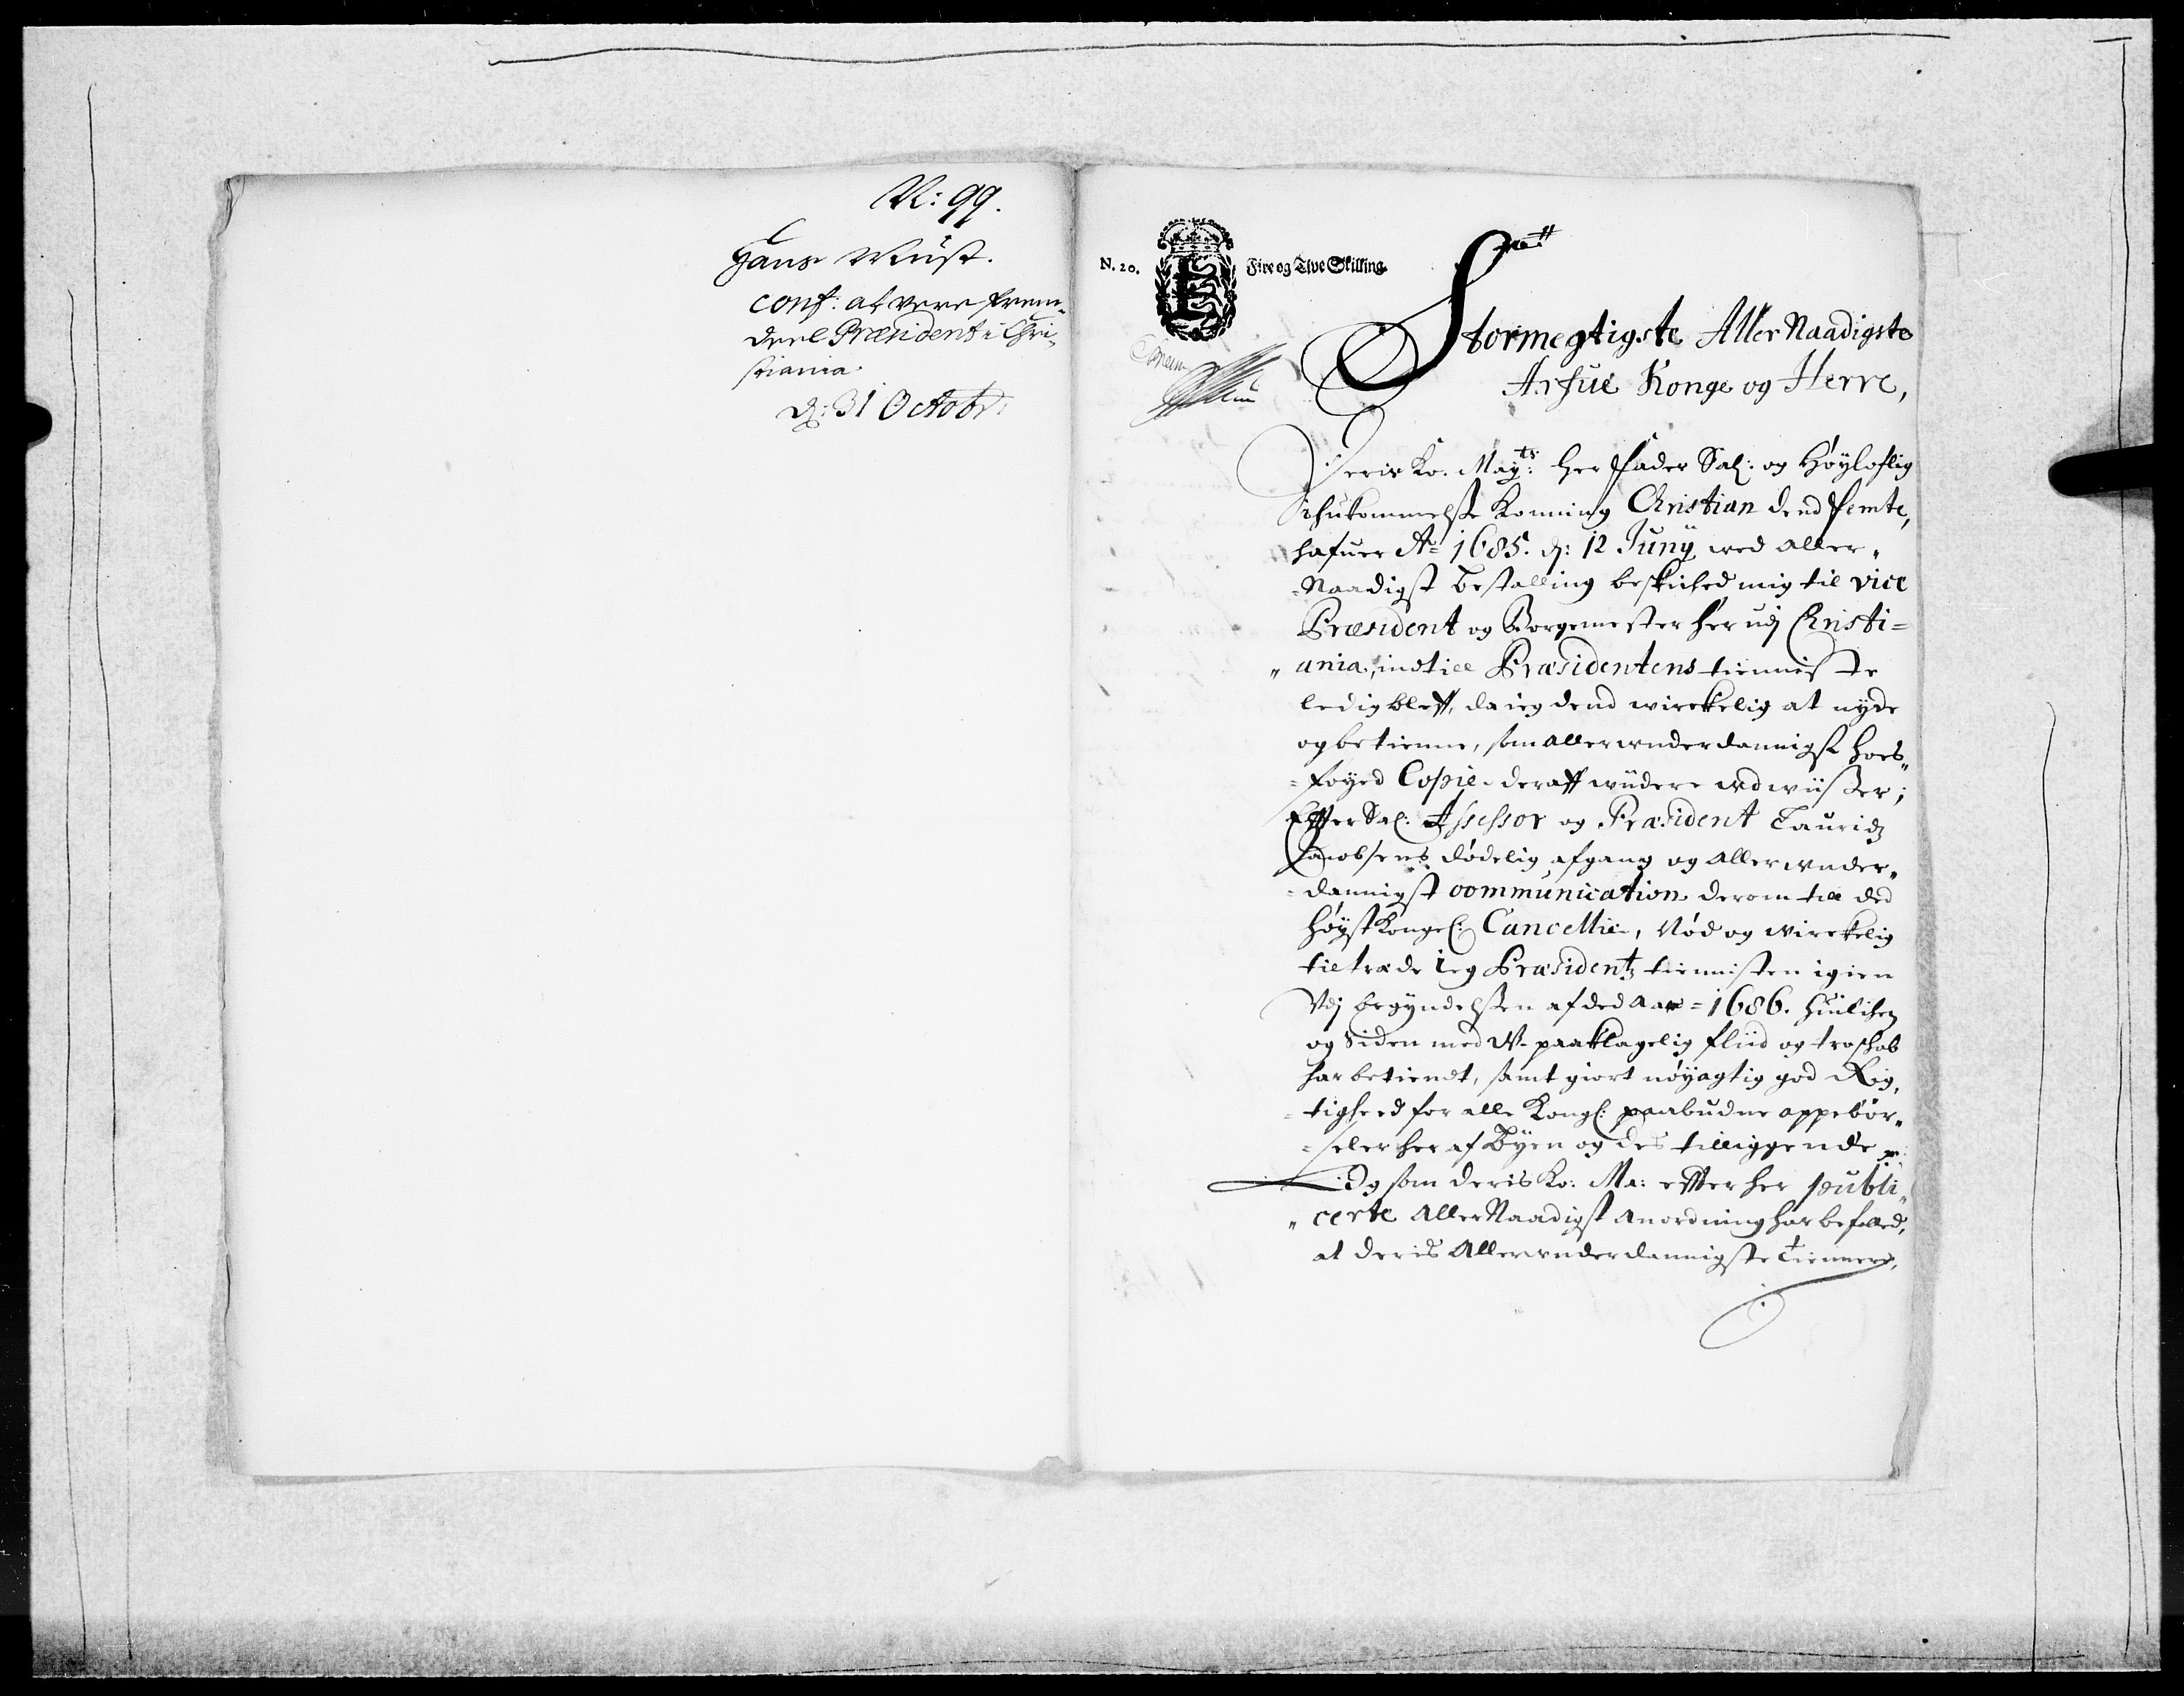 N: 99.
Hans Wüst.
conf: at vere frem„
deel Præsident i Chri„
stiania.
d: 31 Octobr:
N. 20. Fire og Tive Skilling.
Stormegtigste Aller Naadigste
Arfue Konge og Herre,
Deris Ko. May:ts her Fader Sal: og Høyloflig
Ihukommelse Konning Christian dend Femte,
hafuer Ao 1685. d: 12 Juny wed Aller„
Naadigst Bestalling beskiked mig til vice
Præsident og Borgemester her udj Christi=
„ania, indtill Præsidentens tienniste
ledig bleff, da ieg dend wirckelig at nyde
og betienne, som allerwnderdannigst hos„
=føyed Copie deraff wiidere wdwiißer;
Effter Sal: Assessor og Præsident Lauridz
Jacobsens dødelig afgang og Allerwnder„
=dannigst communication derom till ded
Høyst Kongel: Cancellie, Nød og wirckelig
tiltræde ieg Præsidentz tiennisten igien
Vdj begyndelsen af ded Aar = 1686. huilchen
og Siden med W-paaklagelig fliid og troschab
har betiendt, samt giort nøyagtig god Rig„
=tigheed for alle Kongl: paabudne oppebør„
=seler her af Byen og des tilliggende
Og som deris Ko: Ma: effter her publi„
„certe Aller Naadigst Anordning har befalled,
at deris Allerwnderdannigste Tiennere,